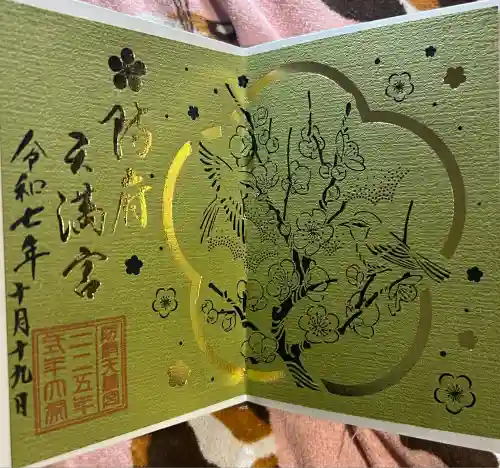 防府
天満宮
令和七年十月十九日
防府天満宮
一一二五年
式年大祭